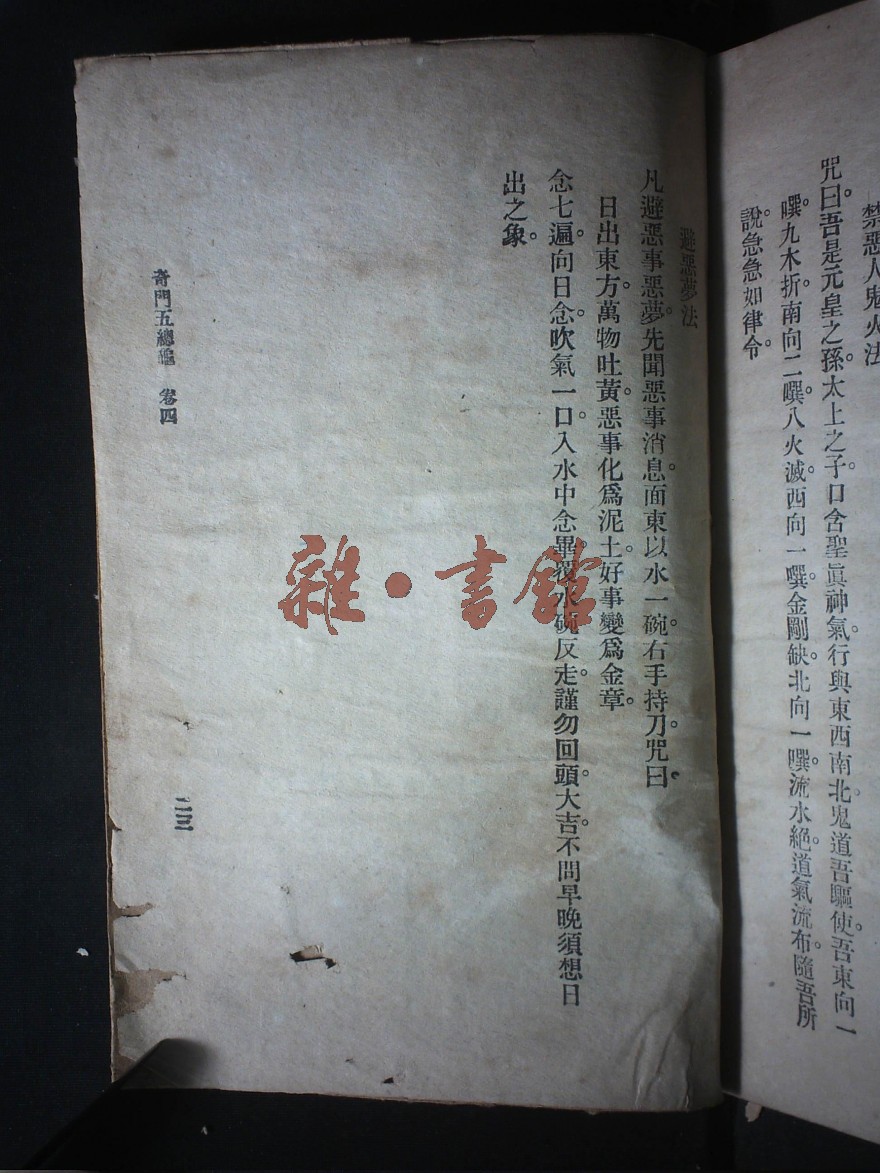 禁惡人鬼火法
咒曰。吾是元皇之孫。太上之子。口含聖眞。神氣行與東西南北。鬼道吾驅使。吾東向一
噀。九木折。南向二噀。八火滅。西向一噀。金剛缺。北向一噀。流水絕。道氣流布。隨吾所
說。急急如律令。
避惡夢法
凡避惡事惡夢。先聞惡事消息。面東以水一碗。右手持刀。咒曰。
日出東方。萬物吐黃。惡事化爲泥土。好事變爲金章。
念七遍。向日念。吹氣一口。入水中念畢。覆水碗反走。謹勿回頭。大吉。不問早晚須想日
出之象。
奇門五總龜 卷四
二三
雜·書館